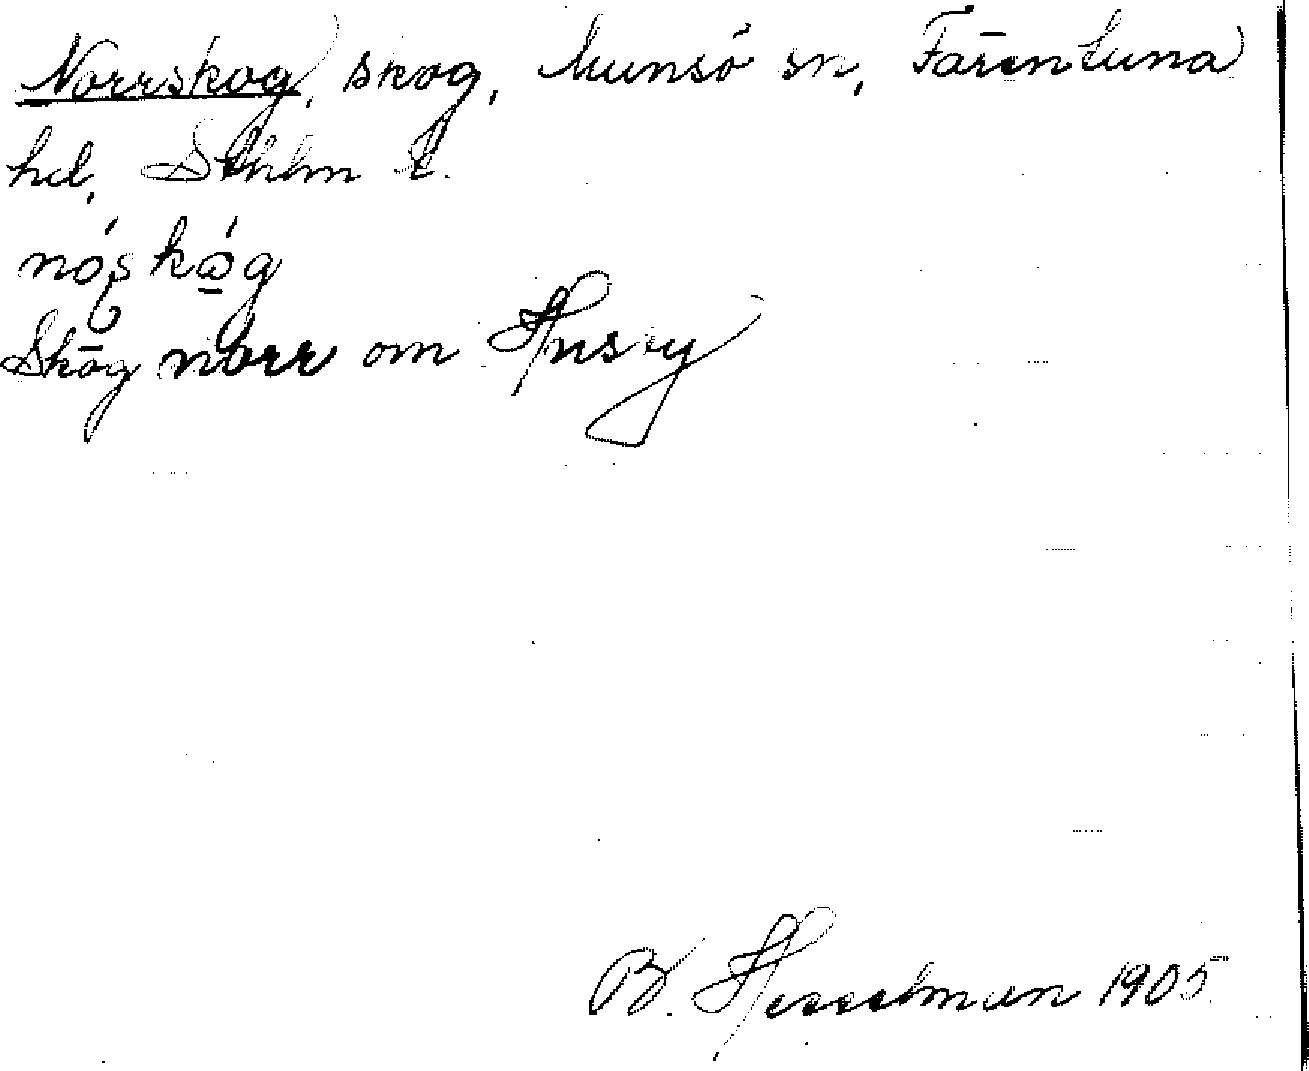 Norrskog, skog, Munsö sn, Färentuna
hd, Sthlm l.
Skog norr om Husby
B. Hesselman 1905